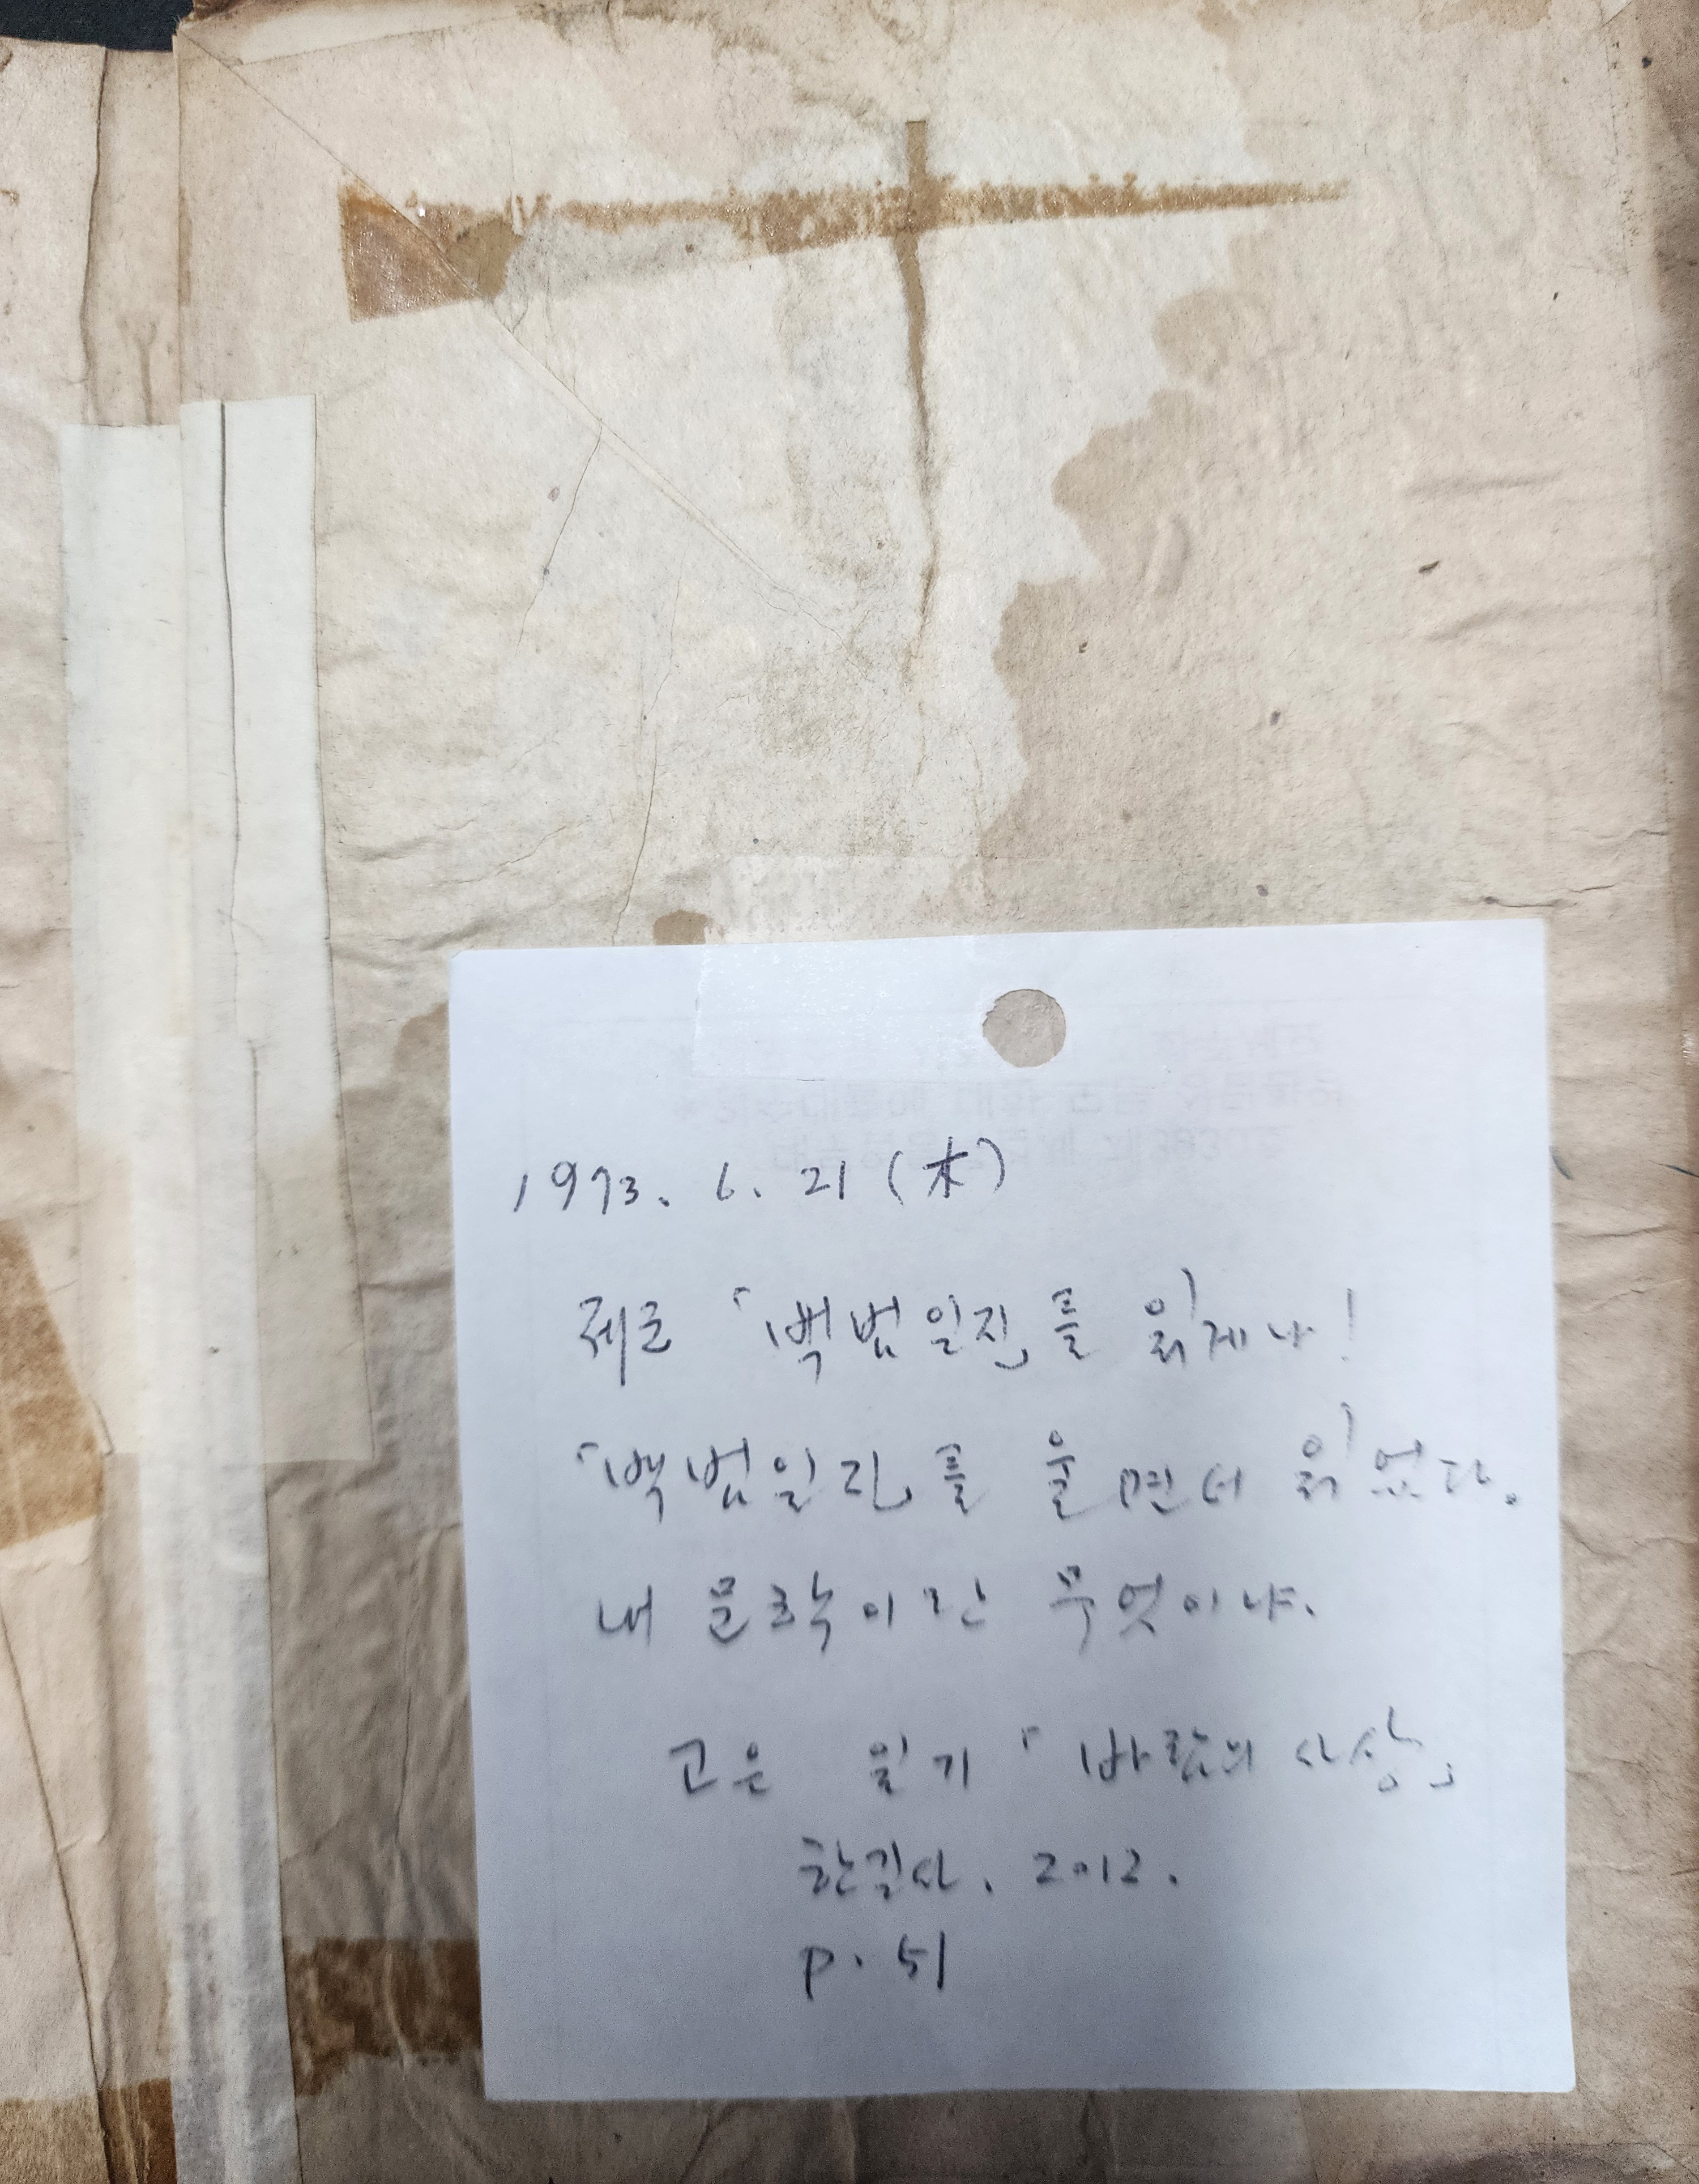 1973. 6. 21 (木)
「백범일지」를 읽게나!
「백범일지」를 울면서 읽었다.
내 문학이란 무엇이냐.
고은 일기 「바람의 사상」
한길사. 2012.
p. 51